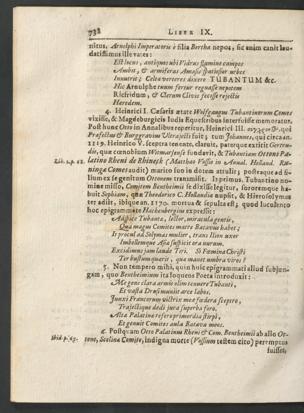 738 LIBER IX.
nitus. Arnolphi Imperatoris è filia Bertha nepos, sic enim canit lau-
datissimus ille vates:
Est locus, antiquus ubi Vidrus flumine campos
Ambit, & armiferas Amasis spatiosior urbes
Innutrit; Celta veteres dixere TUBANTUM &c.
Hic Arnolphe tuum fertur regnasse nepotem
Ricfridum, & Clerum Civis fecisse rejectis
Heredem.
4. Heinrici I. Cæsaris ætate Wolfgangus Tubantinorum Comes
vixisse, & Magdeburgicis ludis Equestribus interfuisse memoratur.
Post hunc Otto in Annalibus reperitur, Heinrici III.
Præfectus & Burggravius Ultrajecti fuit; tum Johannes, qui circa an.
1119. Heinrico V. sceptra tenente, claruit, paterque extitit Gertru-
dis, quæ cœnobium Wiemarsense fundavit, & Tubantiam Ottoni Pa-
Lib. 2. p. 62. latino Rheni de Rhineck (Matthæo Vossio in Annal. Holland. Re-
ninga Comes audit) marito suo in dotem attulit; postquam ad fi-
lium ex se genitum Ottonem transmisit. Is primus Tubantino no-
mine misso, Comitem Benthemii se dixisse legitur, sororemque ha-
buit Sophiam, quæ Theodorico C. Hollandiæ nupsit, & Hierosolymis
ter adiit, ibique an. 1170. mortua & sepulta est; quod luculento
hoc epigrammate Hachenbergius expressit:
Adspice Tubanta, lector, miracula gentis,
Quæ magni Comitis matre Batavus habet;
Is procul ad Solymas mulier, trans Ilion uxor
Imbellemque Asia suspicit ora nurum.
Excidimus jam laude Teri. Si Fœmina Christi
Ter bustum quærit, quæ manet umbra viros?
5. Non tempero mihi, quin huic epigrammati aliud subjun-
gam, quo Benthemium ita loquens Poeta introduxit:
Me gens clara armis olim tenuere Tubanti,
Et vasta Drusinianis arce labos.
Junxi Francorum victrix mea fœdera sceptro,
Trajectique dedi jura superba foro.
Alta Palatino refero primordia stirpi,
Et genuit Comites aula Batava meos.
6. Postquam Otto Palatinus Rheni & Com. Benthemii ab alio Ot-
Ibid. p. 63. tone, Scotinæ Comite, indigna morte (Vossium testem cito) peremptus
fuisset,